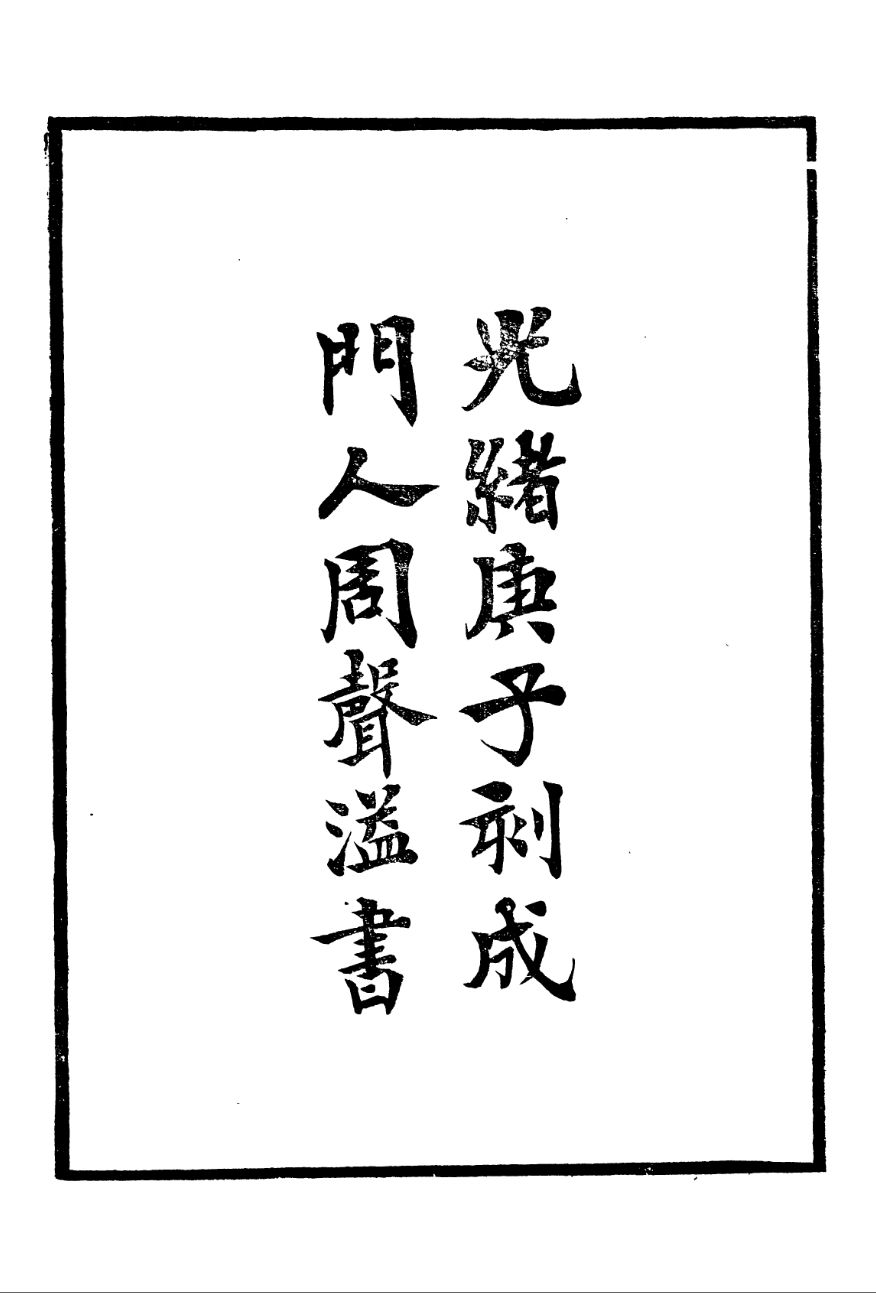 光緒庚子刻成
門人周聲溢書